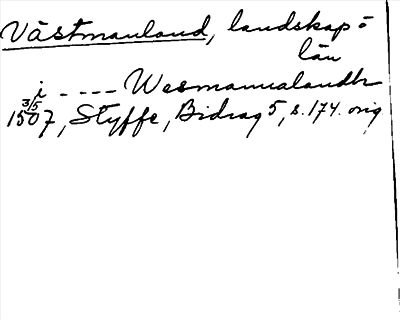 Västmanland, landskap o
län
i - - - - Wesmannalandh
3/5
1507, Styffe, Bidrag 5, s. 174. orig